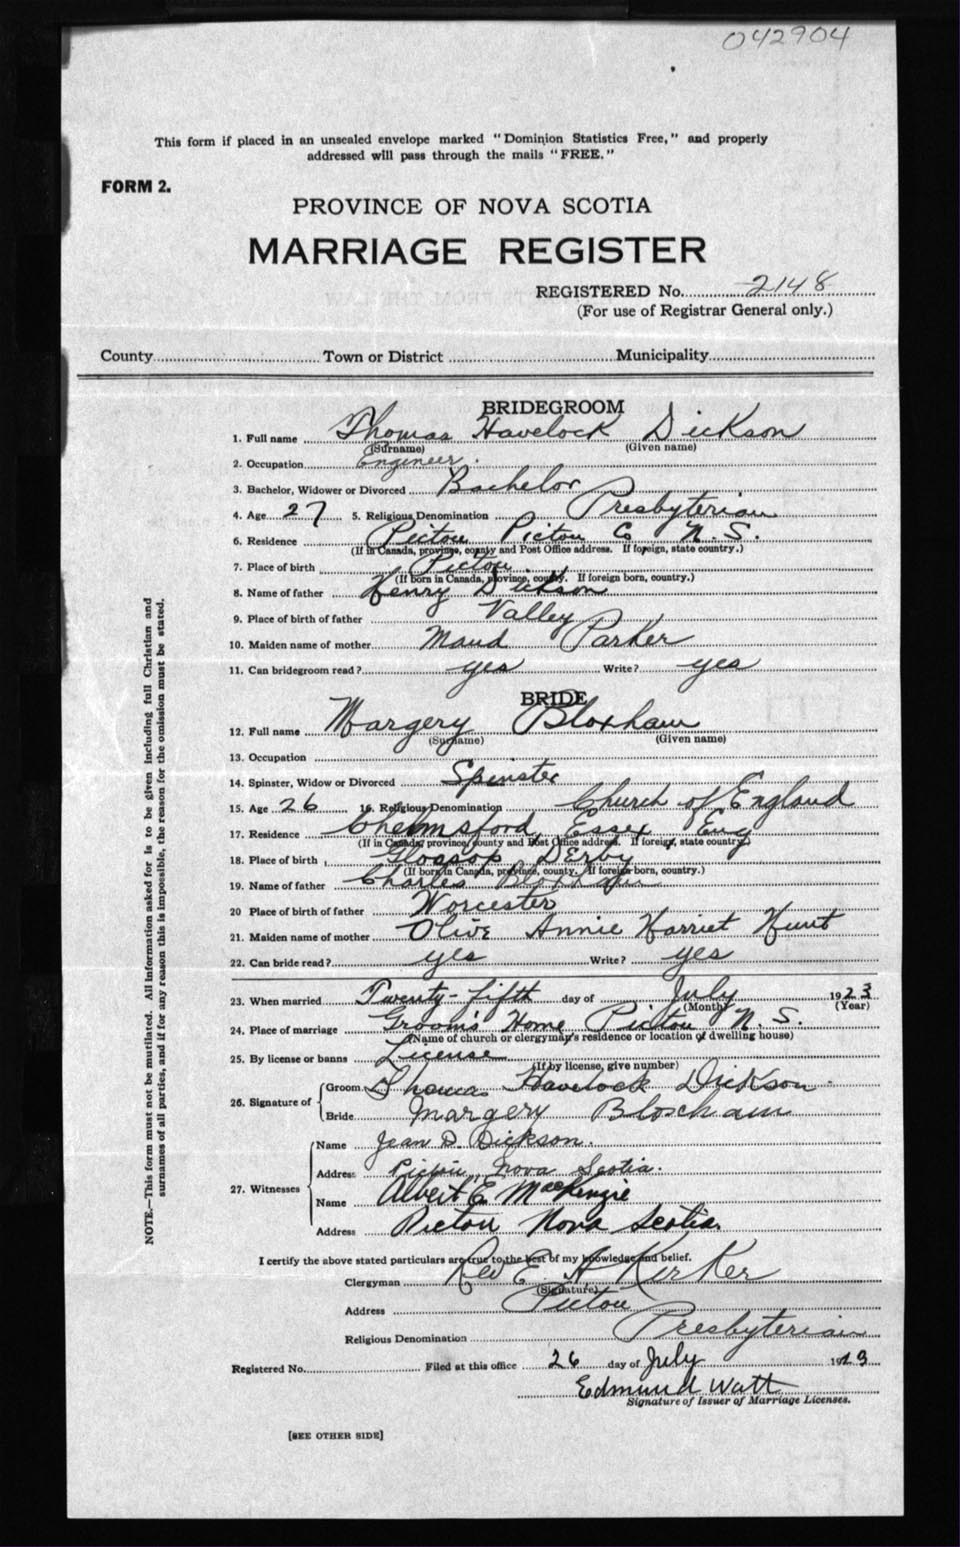 042904
This form if placed in an unsealed envelope marked "Dominion Statistics Free," and properly
addressed will pass through the mails "FREE."
FORM 2.
PROVINCE OF NOVA SCOTIA
MARRIAGE REGISTER
REGISTERED No. 2148
(For use of Registrar General only.)
County Town or District Municipality
BRIDEGROOM
1. Full name Thomas Havelock Dickson
(Surname) (Given name)
2. Occupation Engineer.
3. Bachelor, Widower or Divorced Bachelor
4. Age 27 5. Religious Denomination Presbyterian
6. Residence Pictou Pictou Co N. S.
(If in Canada, province, county and Post Office address. If foreign, state country.)
7. Place of birth Pictou
(If born in Canada, province, county. If foreign born, country.)
8. Name of father Henry Dickson
9. Place of birth of father Valley
10. Maiden name of mother Maud Parker
11. Can bridegroom read? yes Write? yes
BRIDE
12. Full name Margery Bloxham
(Surname) (Given name)
13. Occupation
14. Spinster, Widow or Divorced Spinster
15. Age 26 16. Religious Denomination Church of England
17. Residence Chelmsford, Essex Eng
(If in Canada, province, county and Post Office address. If foreign, state country)
18. Place of birth Glossop Derby
(If born in Canada, province, county. If foreign born, country.)
19. Name of father Charles Bloxham
20 Place of birth of father Worcester
21. Maiden name of mother Olive Annie Harriet Hunt
22. Can bride read? yes Write? yes
23. When married Twenty-fifth day of July 1923
(Month) (Year)
24. Place of marriage Groom's Home Pictou N. S.
(Name of church or clergyman's residence or location of dwelling house)
25. By license or banns License
(If by license, give number)
26. Signature of Groom Thomas Havelock Dickson
Bride Margery Bloxham
27. Witnesses Name Jean D. Dickson.
Address Pictou, Nova Scotia.
Name Albert E. MacKenzie
Address Pictou Nova Scotia.
I certify the above stated particulars are true to the best of my knowledge and belief.
Clergyman Rev E. A Kirker
(Signature)
Address Pictou
Religious Denomination Presbyterian
Registered No. Filed at this office 26 day of July 1923
Edmund Watt
Signature of Issuer of Marriage Licenses.
[SEE OTHER SIDE]
NOTE.—This form must not be mutilated. All information asked for is to be given including full Christian and
surnames of all parties, and if for any reason this is impossible, the reason for the omission must be stated.